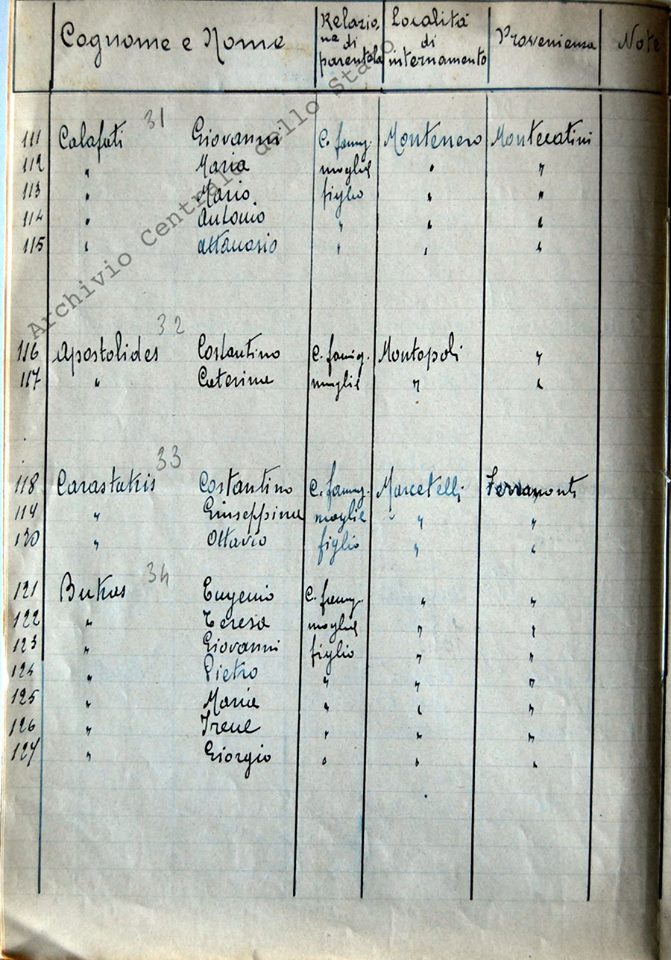 Cognome e Nome Relazione di parentela Località di internamento Provenienza Note
Archivio Centrale dello Stato
31
111 Calafati Giovanni C. famig. Montenero Montecatini
112 " Maria moglie " "
113 " Mario figlio " "
114 " Antonio " " "
115 " Attanasio " " "
32
116 Apostolides Costantino C. famig. Montopoli "
117 " Caterina moglie " "
33
118 Carastatis Costantino C. famig. Marcetelli Ferramonti
119 " Giuseppina moglie " "
120 " Ottavio figlio " "
34
121 Bukas Eugenio C. famig. " "
122 " Teresa moglie " "
123 " Giovanni figlio " "
124 " Pietro " " "
125 " Maria " " "
126 " Irene " " "
127 " Giorgio " " "